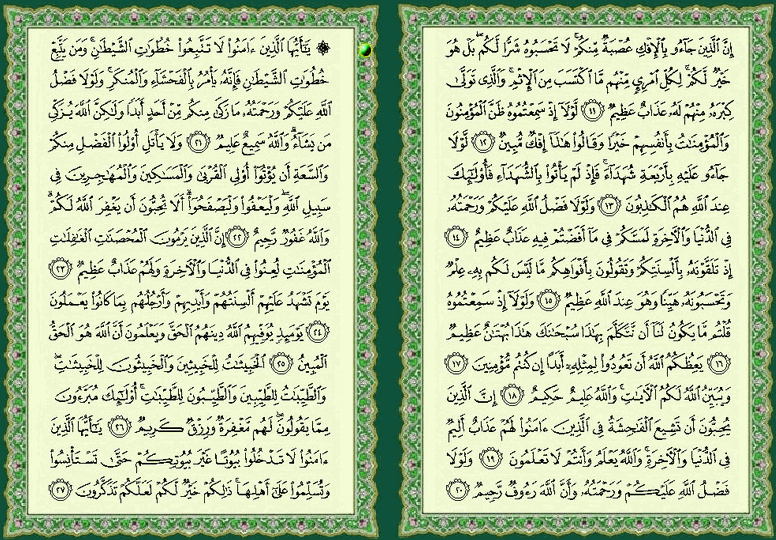 إِنَّ ٱلَّذِينَ جَآءُو بِٱلْإِفْكِ عُصْبَةٌ مِّنكُمْ ۚ لَا تَحْسَبُوهُ شَرًّا لَّكُم ۖ بَلْ هُوَ
خَيْرٌ لَّكُمْ ۚ لِكُلِّ ٱمْرِئٍ مِّنْهُم مَّا ٱكْتَسَبَ مِنَ ٱلْإِثْمِ ۚ وَٱلَّذِى تَوَلَّىٰ
كِبْرَهُۥ مِنْهُمْ لَهُۥ عَذَابٌ عَظِيمٌ ١١ لَّوْلَآ إِذْ سَمِعْتُمُوهُ ظَنَّ ٱلْمُؤْمِنُونَ
وَٱلْمُؤْمِنَٰتُ بِأَنفُسِهِمْ خَيْرًا وَقَالُوا۟ هَٰذَآ إِفْكٌ مُّبِينٌ ١٢ لَّوْلَا
جَآءُو عَلَيْهِ بِأَرْبَعَةِ شُهَدَآءَ ۚ فَإِذْ لَمْ يَأْتُوا۟ بِٱلشُّهَدَآءِ فَأُو۟لَٰٓئِكَ
عِندَ ٱللَّهِ هُمُ ٱلْكَٰذِبُونَ ١٣ وَلَوْلَا فَضْلُ ٱللَّهِ عَلَيْكُمْ وَرَحْمَتُهُۥ
فِى ٱلدُّنْيَا وَٱلْءَاخِرَةِ لَمَسَّكُمْ فِى مَآ أَفَضْتُمْ فِيهِ عَذَابٌ عَظِيمٌ ١٤
إِذْ تَلَقَّوْنَهُۥ بِأَلْسِنَتِكُمْ وَتَقُولُونَ بِأَفْوَاهِكُم مَّا لَيْسَ لَكُم بِهِۦ عِلْمٌ
وَتَحْسَبُونَهُۥ هَيِّنًا وَهُوَ عِندَ ٱللَّهِ عَظِيمٌ ١٥ وَلَوْلَآ إِذْ سَمِعْتُمُوهُ
قُلْتُم مَّا يَكُونُ لَنَآ أَن نَّتَكَلَّمَ بِهَٰذَا سُبْحَٰنَكَ هَٰذَا بُهْتَٰنٌ عَظِيمٌ
١٦ يَعِظُكُمُ ٱللَّهُ أَن تَعُودُوا۟ لِمِثْلِهِۦٓ أَبَدًا إِن كُنتُم مُّؤْمِنِينَ ١٧
وَيُبَيِّنُ ٱللَّهُ لَكُمُ ٱلْءَايَٰتِ ۚ وَٱللَّهُ عَلِيمٌ حَكِيمٌ ١٨ إِنَّ ٱلَّذِينَ
يُحِبُّونَ أَن تَشِيعَ ٱلْفَٰحِشَةُ فِى ٱلَّذِينَ ءَامَنُوا۟ لَهُمْ عَذَابٌ أَلِيمٌ
فِى ٱلدُّنْيَا وَٱلْءَاخِرَةِ ۚ وَٱللَّهُ يَعْلَمُ وَأَنتُمْ لَا تَعْلَمُونَ ١٩ وَلَوْلَا
فَضْلُ ٱللَّهِ عَلَيْكُمْ وَرَحْمَتُهُۥ وَأَنَّ ٱللَّهَ رَءُوفٌ رَّحِيمٌ ٢٠
۞ يَٰٓأَيُّهَا ٱلَّذِينَ ءَامَنُوا۟ لَا تَتَّبِعُوا۟ خُطُوَٰتِ ٱلشَّيْطَٰنِ ۚ وَمَن يَتَّبِعْ
خُطُوَٰتِ ٱلشَّيْطَٰنِ فَإِنَّهُۥ يَأْمُرُ بِٱلْفَحْشَآءِ وَٱلْمُنكَرِ ۚ وَلَوْلَا فَضْلُ
ٱللَّهِ عَلَيْكُمْ وَرَحْمَتُهُۥ مَا زَكَىٰ مِنكُم مِّنْ أَحَدٍ أَبَدًا وَلَٰكِنَّ ٱللَّهَ يُزَكِّى
مَن يَشَآءُ ۗ وَٱللَّهُ سَمِيعٌ عَلِيمٌ ٢١ وَلَا يَأْتَلِ أُو۟لُوا۟ ٱلْفَضْلِ مِنكُمْ
وَٱلسَّعَةِ أَن يُؤْتُوٓا۟ أُو۟لِى ٱلْقُرْبَىٰ وَٱلْمَسَٰكِينَ وَٱلْمُهَٰجِرِينَ فِى
سَبِيلِ ٱللَّهِ ۖ وَلْيَعْفُوا۟ وَلْيَصْفَحُوٓا۟ ۗ أَلَا تُحِبُّونَ أَن يَغْفِرَ ٱللَّهُ لَكُمْ ۗ
وَٱللَّهُ غَفُورٌ رَّحِيمٌ ٢٢ إِنَّ ٱلَّذِينَ يَرْمُونَ ٱلْمُحْصَنَٰتِ ٱلْغَٰفِلَٰتِ
ٱلْمُؤْمِنَٰتِ لُعِنُوا۟ فِى ٱلدُّنْيَا وَٱلْءَاخِرَةِ وَلَهُمْ عَذَابٌ عَظِيمٌ ٢٣
يَوْمَ تَشْهَدُ عَلَيْهِمْ أَلْسِنَتُهُمْ وَأَيْدِيهِمْ وَأَرْجُلُهُم بِمَا كَانُوا۟ يَعْمَلُونَ
٢٤ يَوْمَئِذٍ يُوَفِّيهِمُ ٱللَّهُ دِينَهُمُ ٱلْحَقَّ وَيَعْلَمُونَ أَنَّ ٱللَّهَ هُوَ ٱلْحَقُّ
ٱلْمُبِينُ ٢٥ ٱلْخَبِيثَٰتُ لِلْخَبِيثِينَ وَٱلْخَبِيثُونَ لِلْخَبِيثَٰتِ ۖ
وَٱلطَّيِّبَٰتُ لِلطَّيِّبِينَ وَٱلطَّيِّبُونَ لِلطَّيِّبَٰتِ ۚ أُو۟لَٰٓئِكَ مُبَرَّءُونَ
مِمَّا يَقُولُونَ ۖ لَهُم مَّغْفِرَةٌ وَرِزْقٌ كَرِيمٌ ٢٦ يَٰٓأَيُّهَا ٱلَّذِينَ
ءَامَنُوا۟ لَا تَدْخُلُوا۟ بُيُوتًا غَيْرَ بُيُوتِكُمْ حَتَّىٰ تَسْتَأْنِسُوا۟
وَتُسَلِّمُوا۟ عَلَىٰٓ أَهْلِهَا ۚ ذَٰلِكُمْ خَيْرٌ لَّكُمْ لَعَلَّكُمْ تَذَكَّرُونَ ٢٧